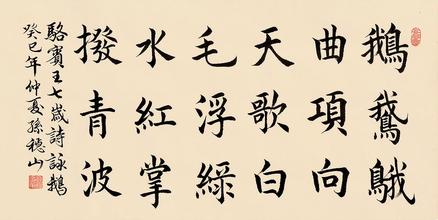 鵝鵞䳘
曲項向
天歌白
毛浮緑
水紅掌
撥青波
駱賓王七歲詩詠鵝
癸巳年仲夏孫穗山